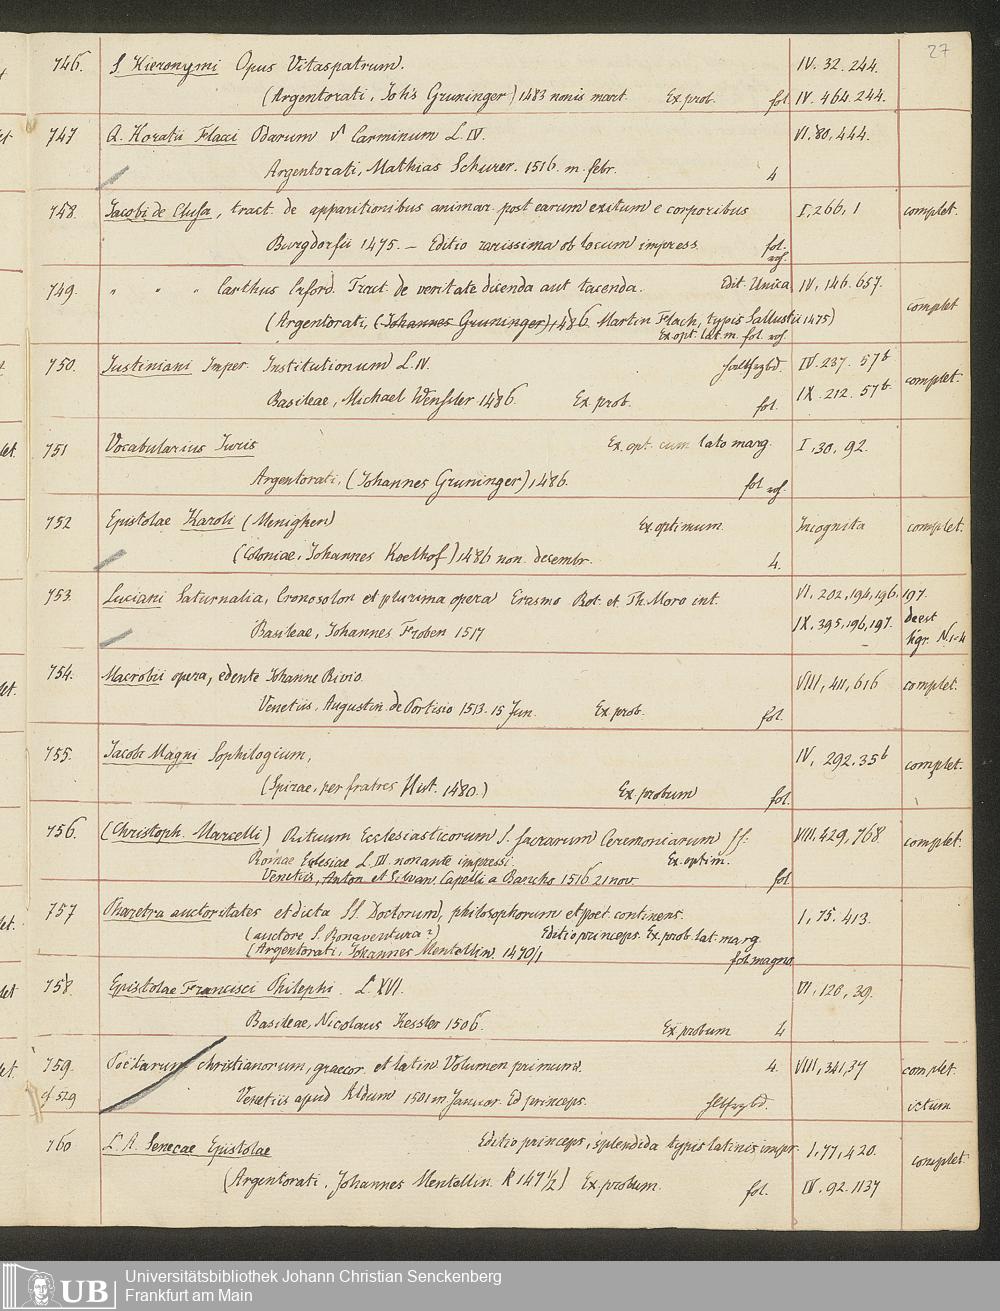 27
746. S Hieronymi Opus Vitaspatrum. IV. 32. 244.
(Argentorati, Joh's Gruninger) 1483 nonis mart. Ex prob. fol. IV. 464. 244.
747 Q. Horatii Flacci Odarum Carminum L. IV. VI. 80, 444.
Argentorati, Mathias Schurer. 1516. m. febr. 4
748. Jacobi de Clusa, tract. de apparitionibus animar. post earum exitum e corporibus I, 266, 1 complet.
Burgdorfii 1475. – Editio rarissima ob locum impress. fol.
749. " " " Carthus Erford. Tract. de veritate dicenda aut tacenda. Edit. Unica IV, 146. 657.
complet
(Argentorati, (Johannes Gruninger), 1486. Martin Flach, typis Sallustii 1475)
Ex opt. lat. m. fol.
750. Justiniani Imper. Institutionum L. IV. IV. 237. 57b
complet.
Basileae, Michael Wenssler 1486. Ex prob. fol. IX. 212. 57b
751 Vocabularius Juris Ex. opt. cum lato marg. I, 30, 92.
Argentorati, (Johannes Gruninger), 1486. fol
752 Epistolae Karoli (Menigken) Ex. optimum. Incognita complet.
(Coloniae, Johannes Koelhof) 1486 non. decembr. 4.
753. Luciani Saturnalia, Cronosolon et plurima opera Erasmo Rot. et Th. Moro int. VI. 202, 194, 196, 197.
Basileae, Johannes Froben 1517 IX. 395, 196, 197. deest
Sign. N. 1-4
754. Macrobii opera, edente Johanne Rivio. VIII, 411, 616 complet.
Venetiis, Augustin. de Portisio 1513. 15 Jun. Ex prob. fol.
755. Jacobi Magni Sophilogium, IV, 292. 35b complet.
(Spirae, per fratres Hist. 1480.) Ex probum fol.
756. (Christoph. Marcelli) Rituum Ecclesiasticorum S. sacrarum Ceremoniarum SS: VIII, 429, 768. complet.
Romae Eclesiae L. III. non ante impressi. Ex. optim.
Venetiis, Anton et Silvan. Capelli a Bancho 1516 21 nov. fol.
757 Pharetra auctoritates et dicta SS. Doctorum, philosophorum et poet. continens. I, 75. 413.
(auctore S. Bonaventura?) Editio princeps. Ex. prob. lat. marg.
(Argentorati, Johannes Mentellin. 1470/1 fol. magno
758. Epistolae Francisci Philephi. L. XVI. VI, 120, 39.
Basileae, Nicolaus Kessler 1506. Ex probum 4
759. Poëtarum christianorum, graecor. et latin Volumen primum. 4. VIII, 341, 37 complet.
cf 529 Venetiis apud Aldum 1501 m Januar. Ed princeps. ictum
760 L. A. Senecae Epistolae Editio princeps, splendida typis latinis impr. I, 77, 420. complet
(Argentorati, Johannes Mentellin R 147 1/2) Ex. probum. fol. IV. 92. 1137
UB
Universitätsbibliothek Johann Christian Senckenberg
Frankfurt am Main